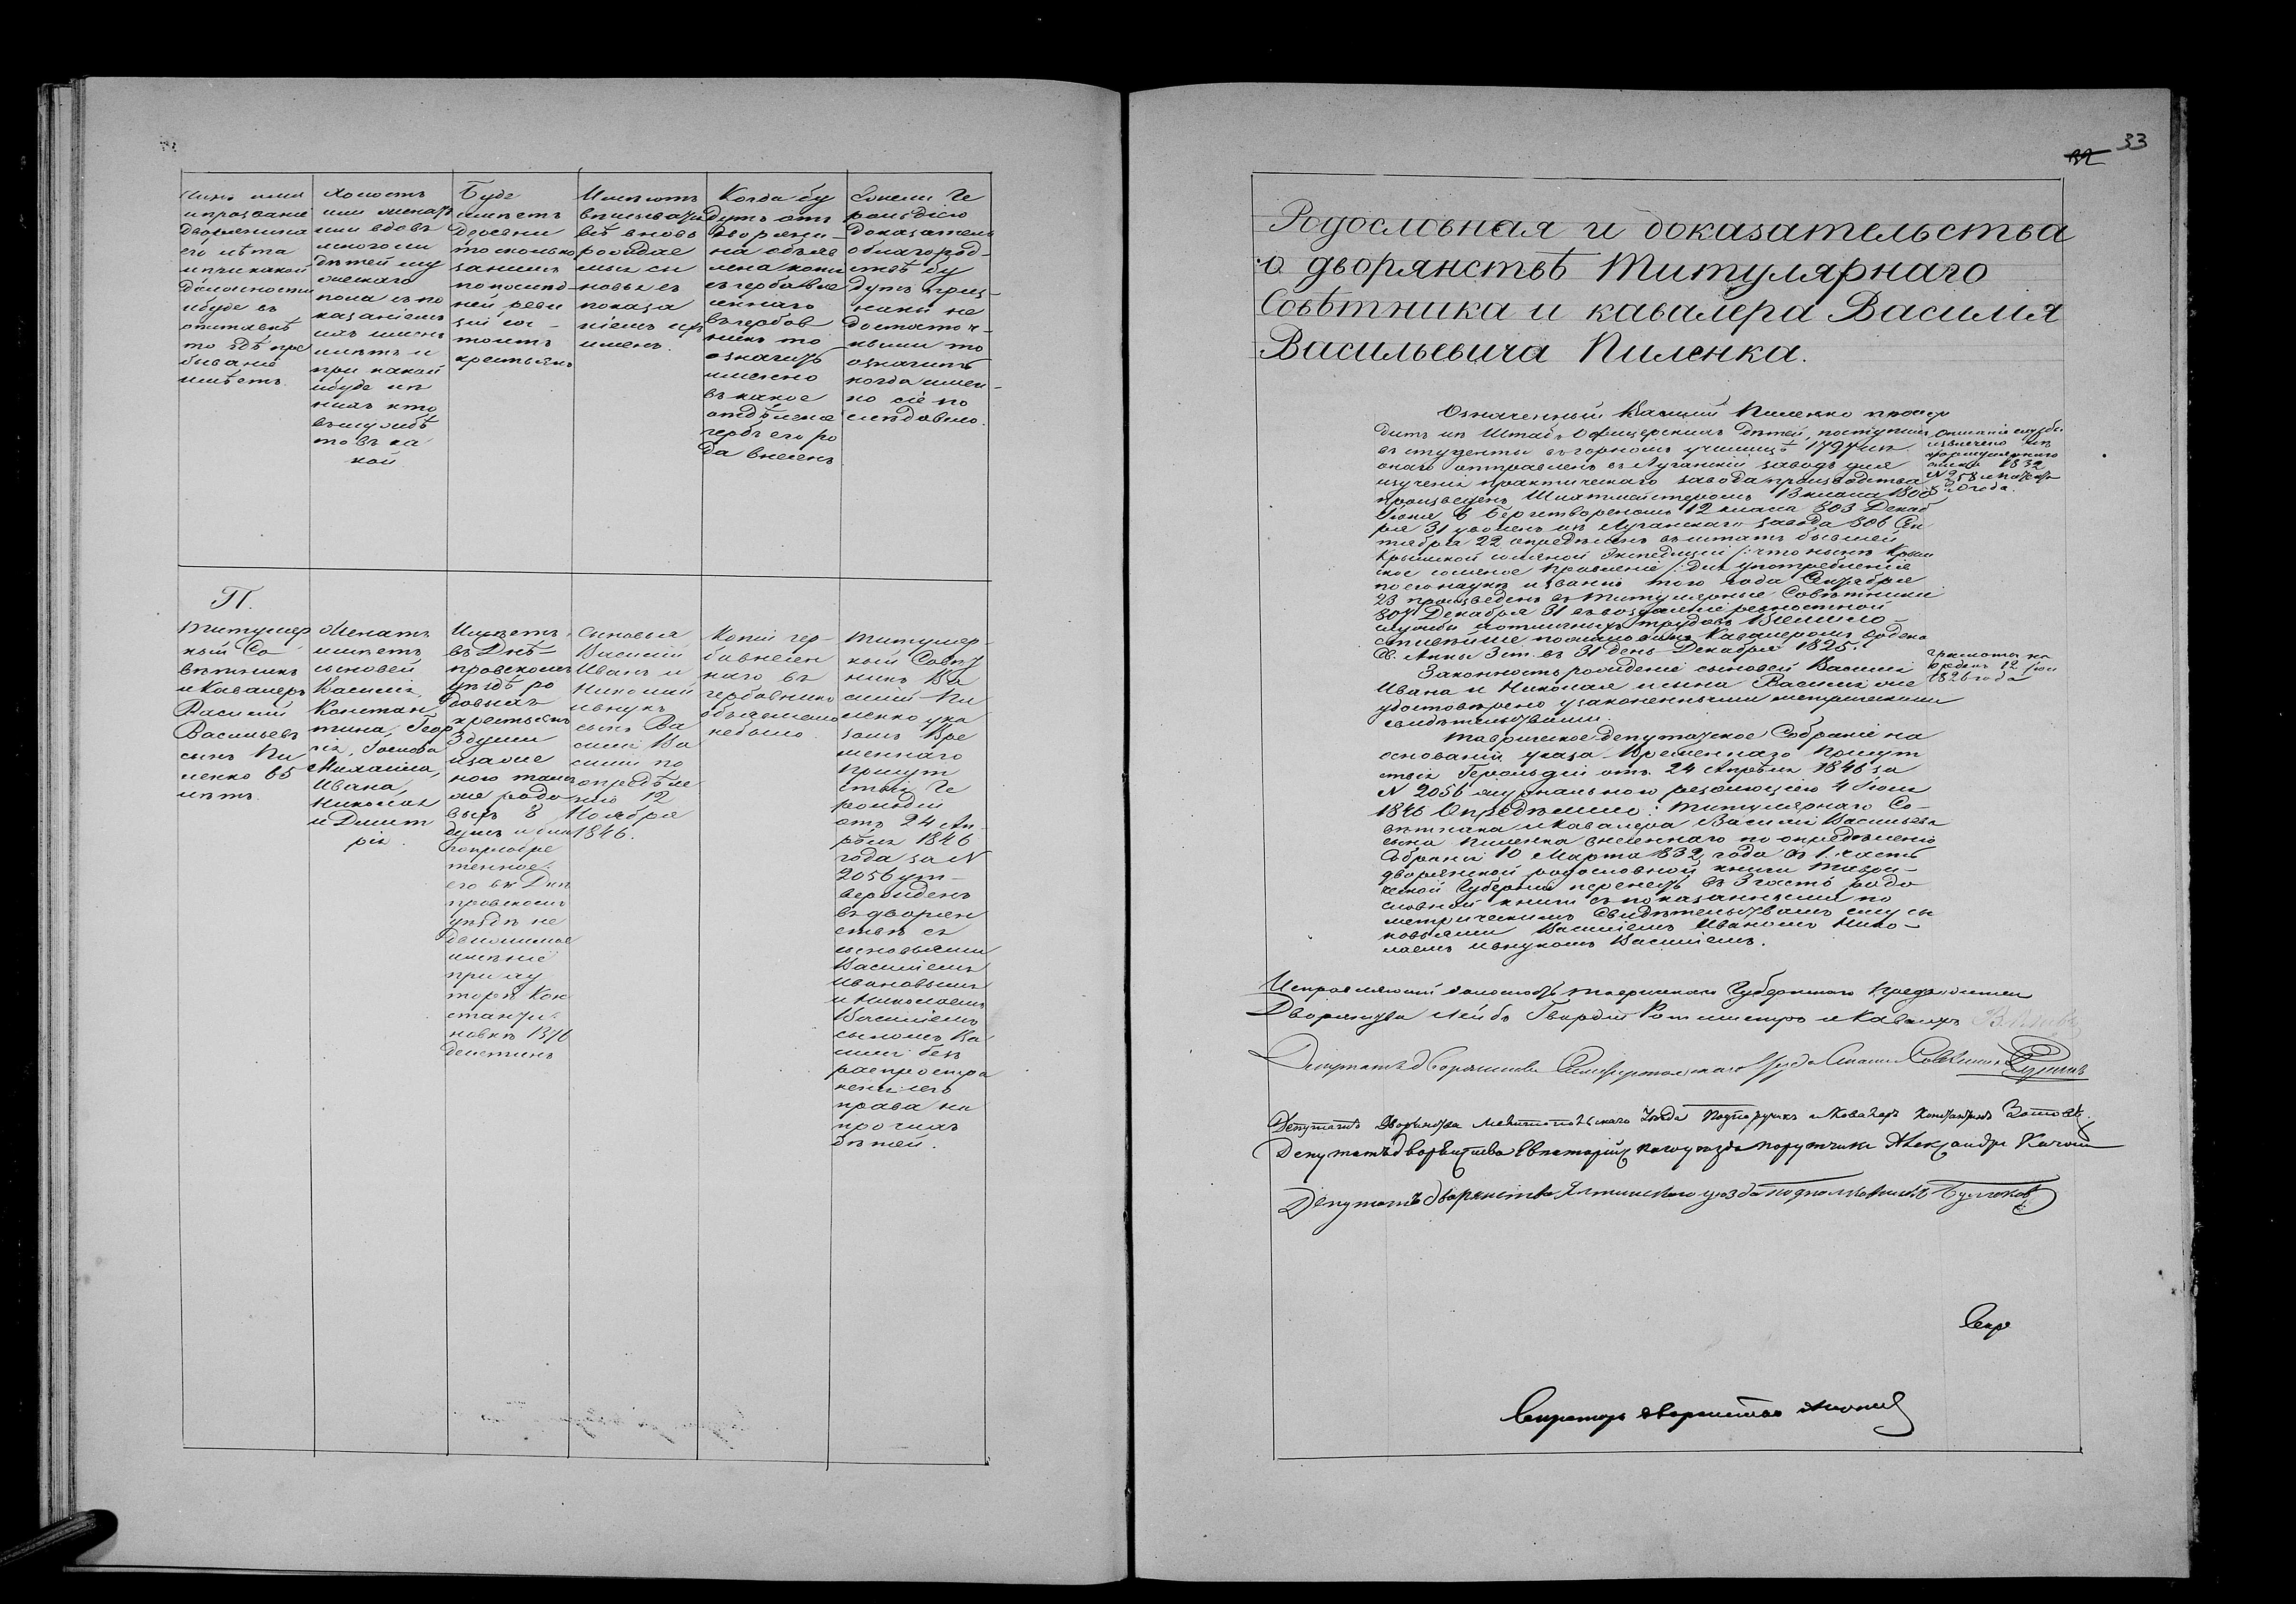 Чинъ имя
и прозваніе
дворянина
его лѣта
и при какой
должности
ибуде въ
отставкѣ
то гдѣ пре
бываніе
имѣетъ.
Холостъ
или женатъ
или вдовъ
много ли
дѣтей му
жескаго
пола съ по
казаніемъ
ихъ именъ
и лѣтъ и
при какой
ибуде изъ
нихъ кто
въ службѣ
то въ ка
кой
Буде
имѣетъ
деревни
то сколько
за нимъ
по послѣд-
ней реви
зіи со-
стоитъ
крестьянъ
Имѣютъ
вписывать
всѣ вновь
рождае
мыи сы
новья съ
показа
ніемъ ихъ
именъ.
Когда бу
дутъ отъ
дворяни-
на объяв
лена копія
съ герба вне
сеннаго
въ гербов
никъ то
означить
именно
въ какое
отдѣленіе
гербъ его ро
да внесенъ
Ежели Ге
рольдіею
доказатель
о благород-
ствѣ бу
дутъ приз-
наны не
достаточ-
ными то
означить
когда имен-
но сіе по
слѣдовало.
П.
Титуляр
ный Со-
вѣтникъ
и Кавалеръ
Василій
Васильевъ
сынъ Пи
ленко 65
лѣтъ.
Женатъ
имѣетъ
сыновей
Василія,
Констан
тина, Геор
гія, Іосифа
Михаила,
Ивана,
Николая
и Димит
рія.
Имѣетъ
въ Днѣ-
провскомъ
уѣздѣ ро
довыхъ
крестьянъ
3 души
и за же
ною тако
же родо
выхъ 8
душъ и бла
гопріобре
тенное
его въ Днѣ
провскомъ
уѣздѣ не
движимое
имѣніе
при ху
торѣ Кон
станти-
новкѣ 1376
десятинъ
Сыновья
Василій
Иванъ и
Николай
и внукъ
сынъ Ва
силія Ва
силій по
опредѣле
нію 12
Ноября
1846.
Копій гер-
ба внесен
наго въ
гербовникъ
объявлено
небыло.
Титуляр-
ный Совѣт
никъ Ва
силій Пи
ленко ука
зомъ Вре
меннаго
Присут
ствія Ге
рольдіи
отъ 24 Ап-
рѣля 1846
года за N
2056 ут-
вержденъ
въ дворян
ствѣ съ
сыновьями
Василіемъ
Ивановымъ
и Николаемъ
Василіемъ
сыномъ Ва
силія безъ
распростра
ненія его
права на
прочихъ
дѣтей.
33
32
Родословная и доказательства
о дворянствѣ Титулярнаго
Совѣтника и кавалера Василія
Васильевича Пиленка.
Означенный Василій Пиленко происхо
дитъ изъ Штабъ Офицерскихъ дѣтей, поступилъ
въ студенты въ горномъ училищѣ 1797 изъ
онаго отправленъ въ Луганскій заводъ для
изученія практическаго заводапроизводства
произведенъ Шихтмейстеромъ 13 класса 1800
Іюня 6 Бергешвореномъ 12 класса 803 Декаб
ря 31 уволенъ изъ Луганскаго завода 806 Сен
тября 22 опредѣленъ въ штатъ бывшей
Крымской соляной экспедиціи /: что нынѣ Крым
ское соляное Правленіе :/ для употребленія
по его наукѣ и званію того года Сентября
23 произведенъ въ Титулярные Совѣтники
807 Декабря 31 въ воздаяніе ревностной
службы и отличныхъ трудовъ Всемило-
стивѣйше пожалованъ Кавалеромъ Ордена
Св. Анны 3 ст. въ 31 день Декабря 1825.
Законность рожденія сыновей Василія
Ивана и Николая и сына Василія же
удостовѣрено узаконенными метрическими
свидѣтельствами.
Таврическое депутатское Собраніе на
основаніи указа Временнаго Присут
ствія Герольдіи отъ 24 Апрѣля 1846 за
N 2056 журнальною резолюціею 4 Іюня
1846 Опредѣлило: Титулярнаго Со-
вѣтника и Кавалера Василія Васильева
сына Пиленка внесеннаго по опредѣленію
Собранія 10 Марта 1832 года въ 1. часть
дворянской родословной книги Таври-
ческой Губерніи перенесть въ 3 часть родо
словной книги съ показанными по
метрическимъ свидѣтельствамъ ему сы
новьями Василіемъ Иваномъ Нико-
лаемъ и внукомъ Василіемъ.
Описаніе службы
извлечено изъ
формулярнаго
списка 1832
N 258
года.
грамота на
Орденъ 12 Іюн
1826 года
Исправляющій должность Таврическаго Губернскаго Предводителя
Дворянства Лейбъ Гвардіи Ротмистръ и Кавалеръ
Депутатъ дворянства Симферопольскаго Уѣзда
Депутатъ Дворянства Мелитопольскаго Уѣзда Подпоручикъ и Кавалеръ Константинъ Зотовъ
Депутатъ дворянства Евпаторійскаго уѣзда порутчикъ Александръ
Депутатъ дворянства Ялтинскаго уѣзда подполковникъ Булгаковъ
Секр
Секретарь дворянства